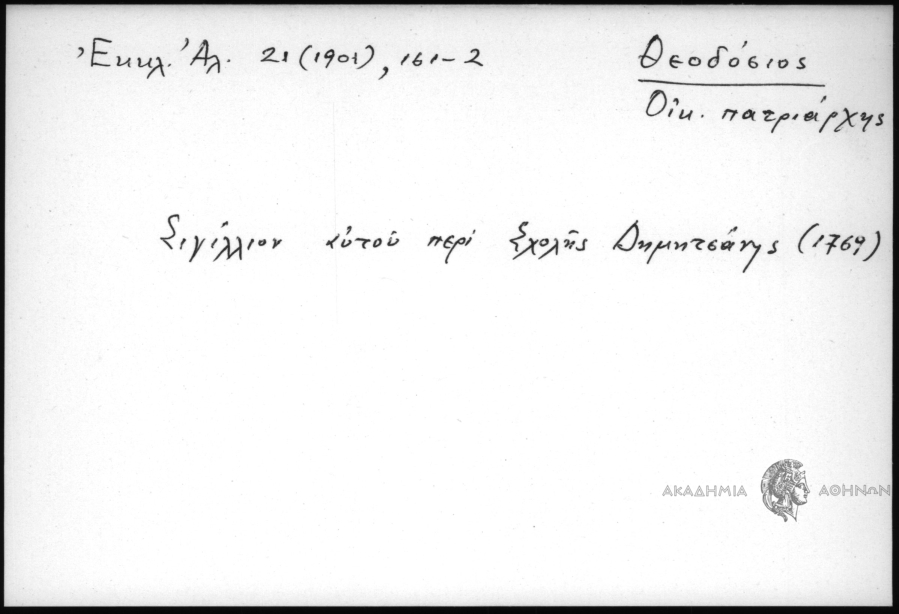 Ἐκκλ. Ἀλ. 21 (1901), 161-2
Θεοδόσιος
Οἰκ. πατριάρχης
Σιγίλλιον αὐτοῦ περὶ Σχολῆς Δημητσάνης (1769)
ΑΚΑΔΗΜΙΑ ΑΘΗΝΩΝ